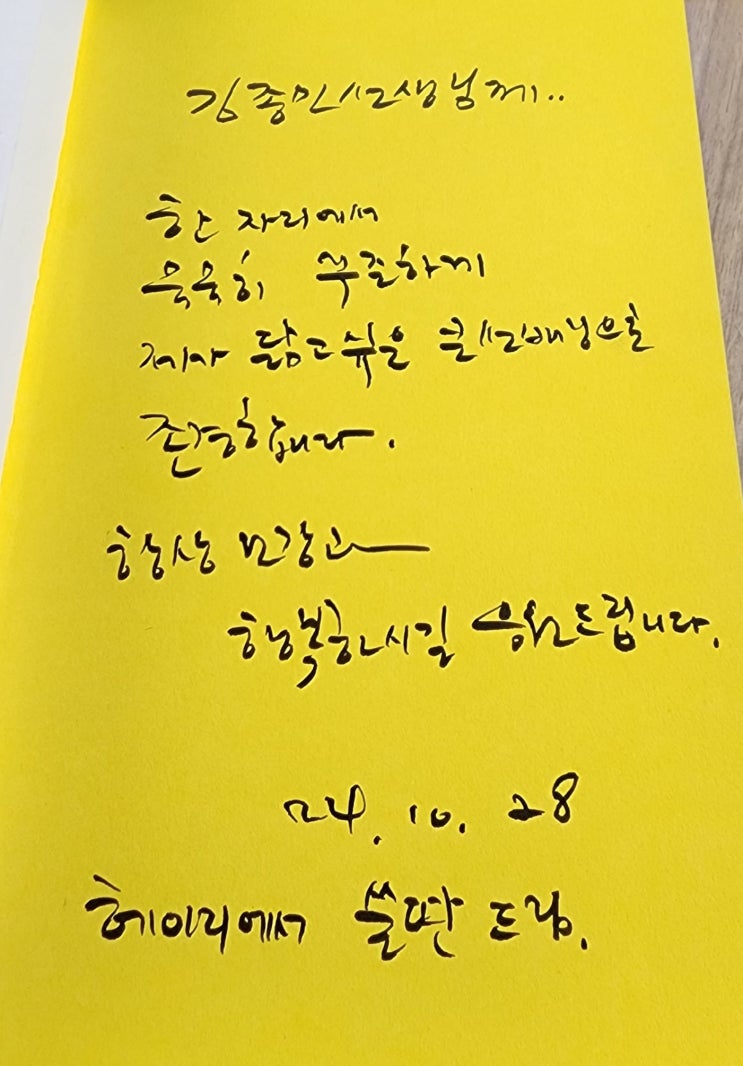 김종민선생님께..
한 자리에서
묵묵히 부족하게
제가 닮고싶은 큰선배님으로
존경합니다.
항상 건강과
행복하시길 응원드립니다.
24. 10. 28
헤이리에서 드림.